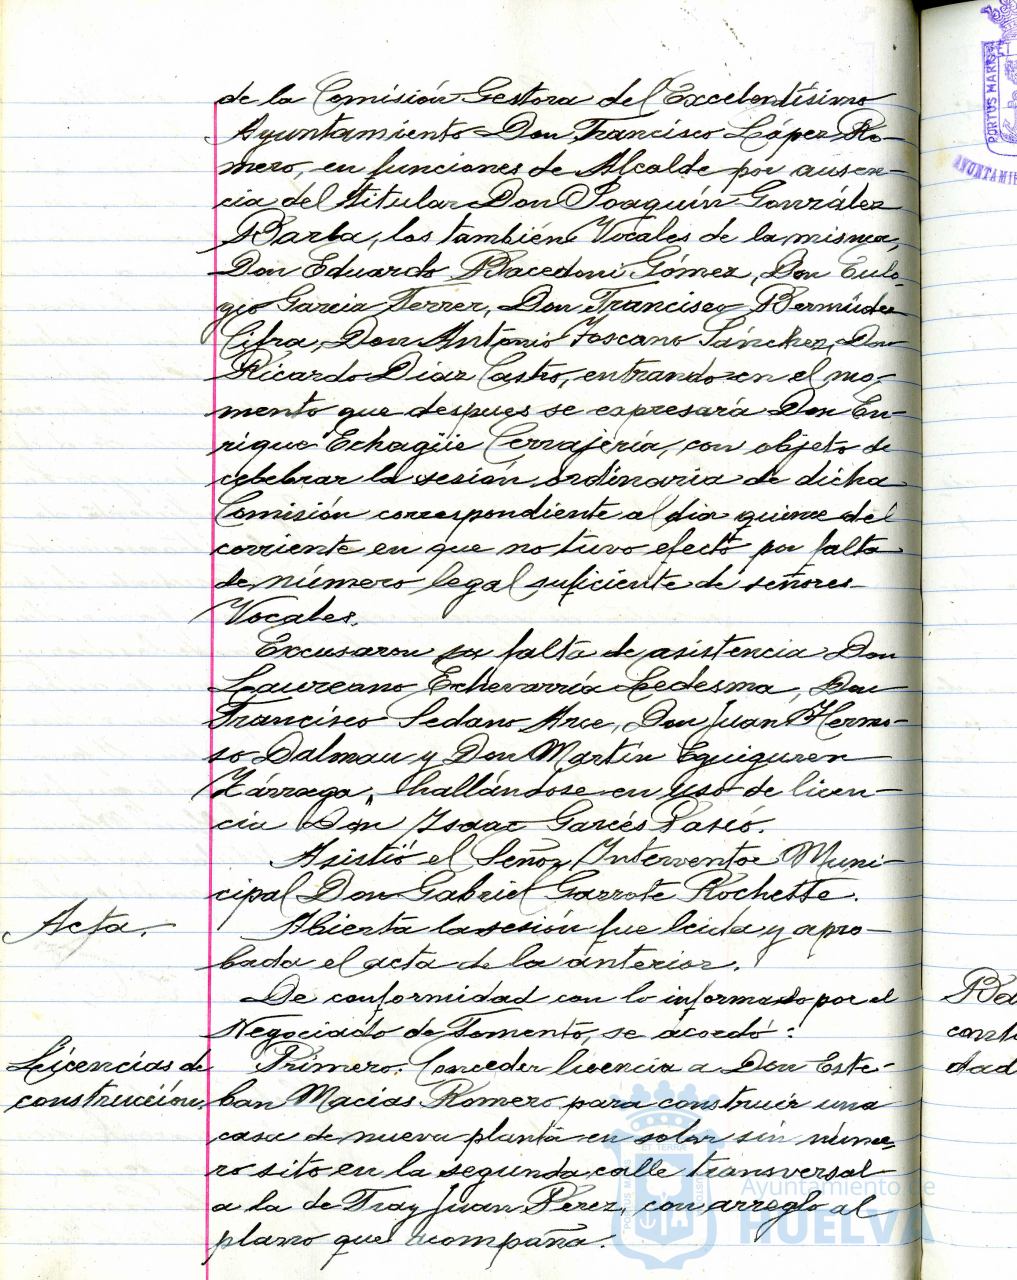 de la Comisión Gestora del Excelentísimo
Ayuntamiento Don Francisco López Ro-
mero, en funciones de Alcalde por ausen-
cia del titular Don Joaquín González
Barba, los también Vocales de la misma,
Don Eduardo Bacedoni Gómez, Don Eulo-
gio Garcia Ferrer, Don Francisco Bermúdez
Cifra, Don Antonio Toscano Sánchez, Don
Ricardo Diaz Castro, entrando en el mo-
mento que despues se expresará Don En-
rique Echagüe Cervajería, con objeto de
celebrar la sesión ordinaria de dicha
Comisión correspondiente al dia quince del
corriente en que no tuvo efecto por falta
de número legal suficiente de señores
Vocales.
Excusaron su falta de asistencia Don
Laureano Echevarría Ledesma, Don
Francisco Sedano Arce, Don Juan Hermo-
so Dalmau y Don Martín Eguiguren
Zárraga, hallándose en uso de licen-
cia Don Isaac Garcés Paseó.
Asistió el Señor Interventor Muni-
cipal Don Gabriel Garrote Rochette.
Acta.
Abierta la sesión fue leida y apro-
bada el acta de la anterior.
De conformidad con lo informado por el
Negociado de Fomento, se acordó:
Licencias de
construcción.
Primero. Conceder licencia a Don Este-
ban Macias Romero para construir una
casa de nueva planta en solar sin núme-
ro sito en la segunda calle transversal
a la de Fray Juan Perez, con arreglo al
plano que acompaña.
PORTUS MARIS
Ayuntamiento de
HUELVA